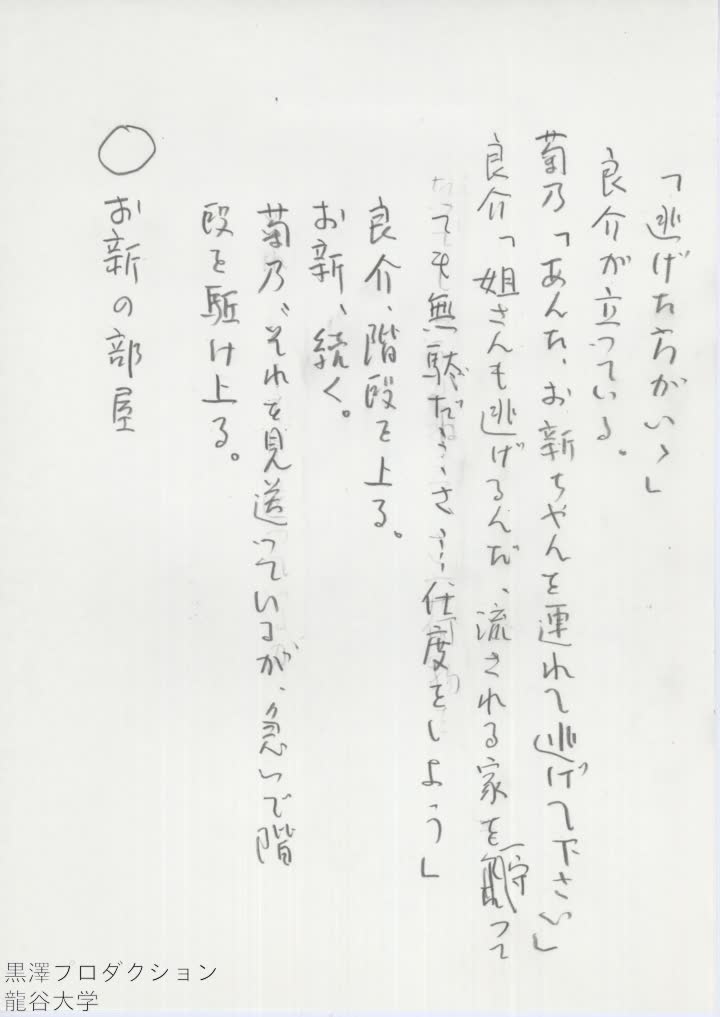 「逃げた方がいゝ」
良介が立っている。
菊乃「あんた、お新ちゃんを連れて逃げて下さい」
良介「姐さんも逃げるんだ、流される家を守って
ても無駄だ……さ……仕度をしよう」
良介、階段を上る。
お新、続く。
菊乃、それを見送っているが、急いで階
段を駈け上る。
○お新の部屋
黒澤プロダクション
龍谷大学